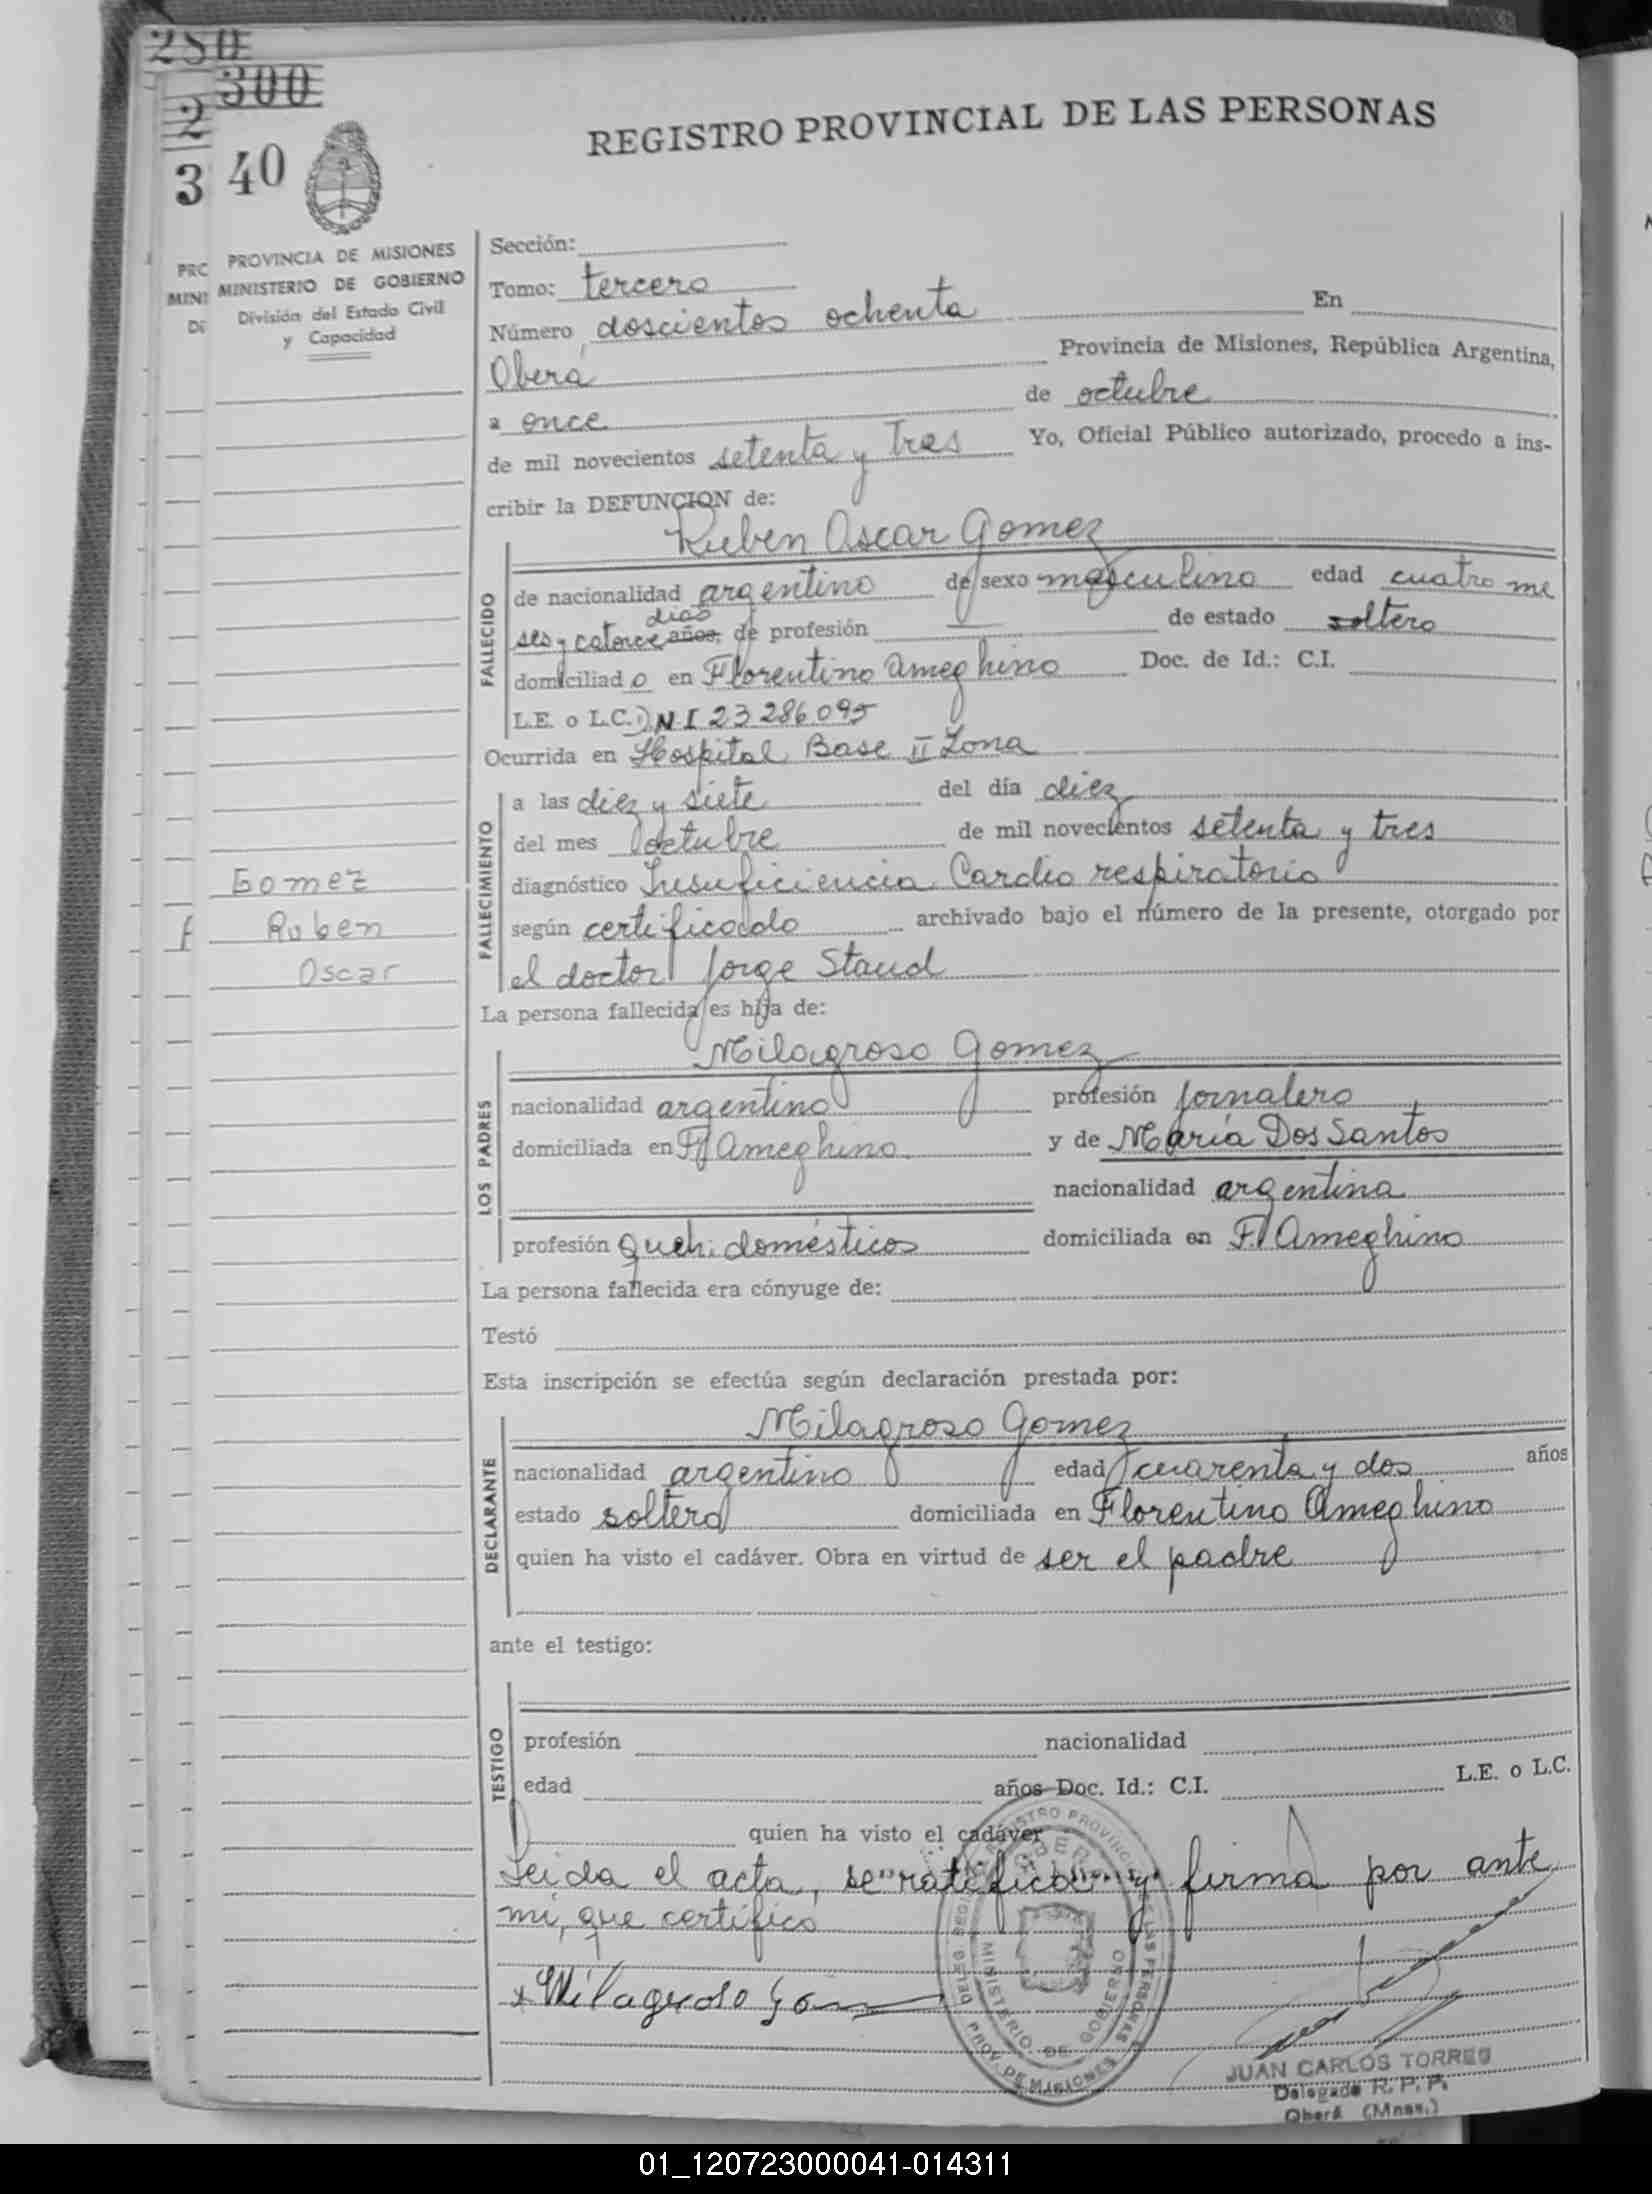 280
300
2
3 40
REGISTRO PROVINCIAL DE LAS PERSONAS
PRC
MINI
Di
PROVINCIA DE MISIONES
MINISTERIO DE GOBIERNO
División del Estado Civil
y Capacidad
Gomez
Ruben
Oscar
Sección:
Tomo: tercero
Número doscientos ochenta En
Oberá Provincia de Misiones, República Argentina,
a once de octubre
de mil novecientos setenta y tres Yo, Oficial Público autorizado, procedo a ins-
cribir la DEFUNCION de:
Ruben Oscar Gomez
FALLECIDO
de nacionalidad argentino de sexo masculino edad cuatro me
dias
ses y catorce años, de profesión — de estado soltero
domiciliado en Florentino Ameghino Doc. de Id.: C.I.
L.E. o L.C. N I 23286095
Ocurrida en Hospital Base II Zona
FALLECIMIENTO
a las diez y siete del día diez
del mes octubre de mil novecientos setenta y tres
diagnóstico Insuficiencia Cardio respiratoria
según certificado archivado bajo el número de la presente, otorgado por
el doctor Jorge Staud
La persona fallecida es hija de:
LOS PADRES
Milagroso Gomez
nacionalidad argentino profesión jornalero
domiciliada en Fl Ameghino y de Maria Dos Santos
nacionalidad argentina
profesión Queh. domésticos domiciliada en Fl Ameghino
La persona fallecida era cónyuge de:
Testó
Esta inscripción se efectúa según declaración prestada por:
DECLARANTE
Milagroso Gomez
nacionalidad argentino edad cuarenta y dos años
estado soltero domiciliada en Florentino Ameghino
quien ha visto el cadáver. Obra en virtud de ser el padre
ante el testigo:
TESTIGO
profesión nacionalidad
edad años Doc. Id.: C.I. L.E. o L.C.
quien ha visto el cadáver
Leida el acta, se ratifica y firma por ante
mi, que certifico
x Milagroso
MINISTERIO DE GOBIERNO
PROV. DE MISIONES
JUAN CARLOS TORRES
Delegado R. P. P.
Oberá (Mnes.)
01_120723000041-014311